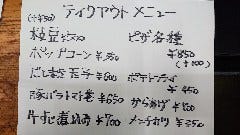 テイクアウトメニュー
(+¥50)
枝豆 ¥300
ポップコーン ¥350
だし巻玉子 ¥600
豚バラトマト巻 ¥650
牛すじ煮込み ¥700
ピザ各種
¥850
(+100)
ポテトフライ
¥450
からあげ
メンチカツ ¥350